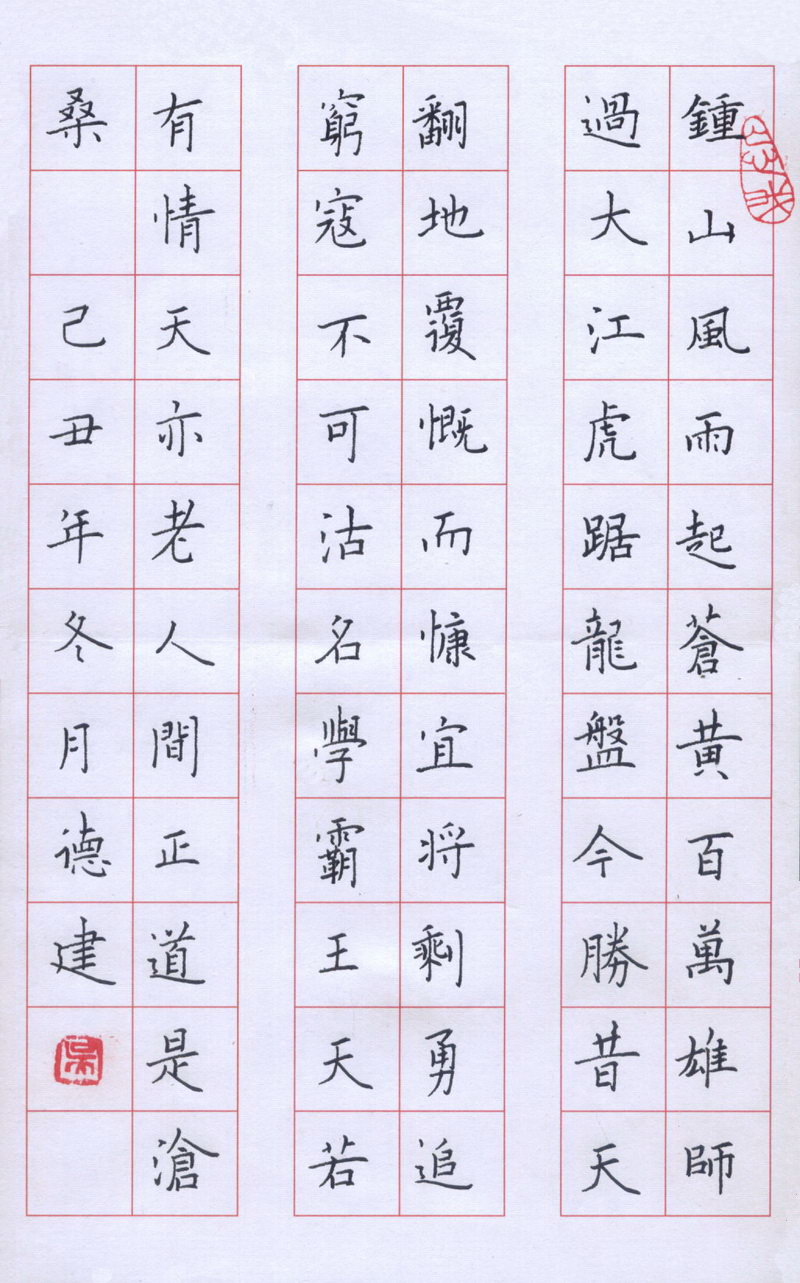 鍾山風雨起蒼黃百萬雄師
過大江虎踞龍盤今勝昔天
翻地覆慨而慷宜将剩勇追
窮寇不可沽名學霸王天若
有情天亦老人間正道是滄
桑 己丑年冬月德建